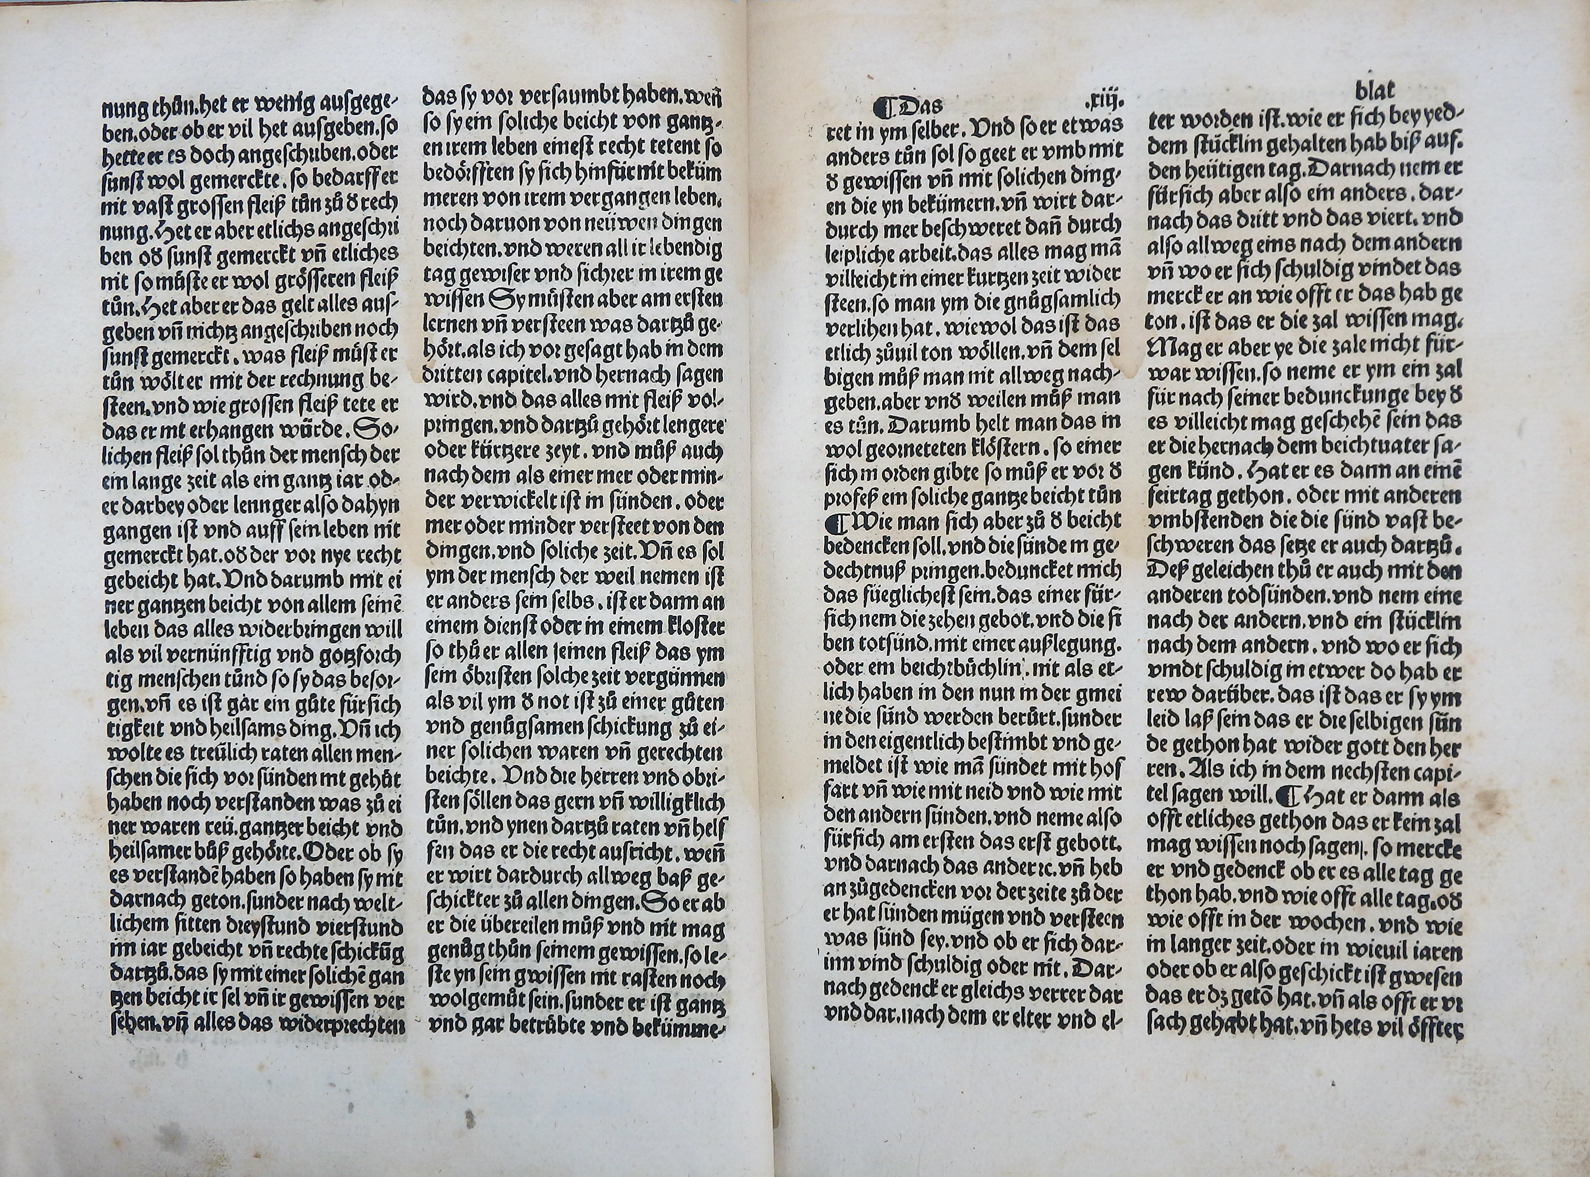 nung thůn. het er wenig ausgege-
ben. oder ob er vil het ausgeben. so
hette er es doch angeschriben. oder
sunst wol gemerckte. so bedarff er
nit vast grossen fleiß tůn zů d̕ rech
nung. Het er aber etlichs angeschri
ben od̕ sunst gemerckt vñ etliches
nit so můste er wol grösseren fleiß
tůn. Het aber er das gelt alles aus-
geben vñ nichtz angeschriben noch
sunst gemerckt. was fleiß müst er
tůn wölt er mit der rechnung be-
steen. vnd wie grossen fleiß tete er
das er nit erhangen wůrde. So-
lichen fleiß sol thůn der mensch der
ein lange zeit als ein gantz iar od-
er darbey oder lennger also dahyn
gangen ist vnd auff sein leben nit
gemerckt hat. od̕ der vor nye recht
gebeicht hat. Vnd darumb mit ei
ner gantzen beicht von allem seinē
leben das alles widerbringen will
als vil vernünfftig vnd gotzforch
tig menschen tůnd so sy das besor-
gen. vñ es ist gar ein gůte fürsich
tigkeit vnd heilsams ding. Vñ ich
wolte es treülich raten allen men-
schen die sich vor sünden nit gehůt
haben noch verstanden was zů ei
ner waren reü. gantzer beicht vnd
heilsamer bůß gehörte. Oder ob sy
es verstandē haben so haben sy nit
darnach geton. sunder nach welt-
lichem sitten dreystund vierstund
im iar gebeicht vñ rechte schickūg
dartzů. das sy mit einer solichē gan
tzen beicht ir sel vñ ir gewissen ver
sehen. vñ alles das widerprechten
das sy vor versaumbt haben. weñ
so sy ein soliche beicht von gantz-
en irem leben einest recht tetent so
bedörfften sy sich hinfür nit beküm
meren von irem vergangen leben.
noch daruon von neüwen dingen
beichten. vnd weren all ir lebendig
tag gewiser vnd sichrer in irem ge
wissen Sy müsten aber am ersten
lernen vñ versteen was dartzů ge-
hört. als ich vor gesagt hab in dem
dritten capitel. vnd hernach sagen
wird. vnd das alles mit fleiß vol-
pringen. vnd dartzů gehört lengere
oder kürtzere zeyt. vnd můß auch
nach dem als einer mer oder min-
der verwickelt ist in sünden. oder
mer oder minder versteet von den
dingen. vnd soliche zeit. Vñ es sol
ym der mensch der weil nemen ist
er anders sein selbs. ist er dann an
einem dienst oder in einem kloster
so thů er allen seinen fleiß das ym
sein öbristen solche zeit vergünnen
als vil ym d̕ not ist zů einer gůten
vnd genůgsamen schickung zů ei-
ner solichen waren vñ gerechten
beichte. Vnd die herren vnd obri-
sten söllen das gern vñ willigklich
tůn. vnd ynen dartzů raten vñ helf
fen das er die recht ausricht. weñ
er wirt dardurch allweg baß ge-
schickter zů allen dingen. So er ab
er die übereilen můß vnd nit mag
genůg thůn seinem gewissen. so le-
ste yn sein gwissen nit rasten noch
wolgemůt sein. sunder er ist gantz
vnd gar betrůbte vnd bekümme-
¶ Das .xiij. blat
ret in ym selber. Vnd so er etwas
anders tůn sol so geet er vmb mit
d̕ gewissen vñ mit solichen ding-
en die yn bekümern. vñ wirt dar-
durch mer beschweret dañ durch
leipliche arbeit. das alles mag mā
villeicht in einer kurtzen zeit wider
steen. so man ym die gnůgsamlich
verlihen hat. wiewol das ist das
etlich zůuil ton wöllen. vñ dem sel
bigen můß man nit allweg nach-
geben. aber vnd̕ weilen můß man
es tůn. Darumb helt man das in
wol georneteten klöstern. so einer
sich in orden gibte so můß er vor d̕
profeß ein soliche gantze beicht tůn
¶ Wie man sich aber zů d̕ beicht
bedencken soll. vnd die sünde in ge-
dechtnuß pringen. beduncket mich
das füeglichest sein. das einer für-
sich nem die zehen gebot. vnd die si
ben totsünd. mit einer außlegung.
oder ein beichtbüchlin. nit als et-
lich haben in den nun in der gmei
ne die sünd werden berürt. sunder
in den eigentlich bestimbt vnd ge-
meldet ist wie mā sündet mit hof
fart vñ wie mit neid vnd wie mit
den andern sünden. vnd neme also
fürsich am ersten das erst gebott.
vnd darnach das ander ꝛc. vñ heb
an zůgedencken vor der zeite zů der
er hat sünden mügen vnd versteen
was sünd sey. vnd ob er sich dar-
inn vind schuldig oder nit. Dar-
nach gedenck er gleichs verrer dar
vnd dar. nach dem er elter vnd el-
ter worden ist. wie er sich bey yed-
dem stücklin gehalten hab biß auf.
den heütigen tag. Darnach nem er
fürsich aber also ein anders. dar-
nach das dritt vnd das viert. vnd
also allweg eins nach dem andern
vñ wo er sich schuldig vindet das
merck er an wie offt er das hab ge
ton. ist das er die zal wissen mag.
Mag er aber ye die zale nicht für-
war wissen. so neme er ym ein zal
für nach seiner bedunckunge bey d̕
es villeicht mag geschehē sein das
er die hernach dem beichtuater sa-
gen künd. Hat er es dann an einē
feirtag gethon. oder mit anderen
vmbstenden die die sünd vast be-
schweren das setze er auch dartzů.
Deß geleichen thů er auch mit den
anderen todsünden. vnd nem eine
nach der andern. vnd ein stücklin
nach dem andern. vnd wo er sich
vindt schuldig in etwer do hab er
rew darüber. das ist das er sy ym
leid laß sein das er die selbigen sün
de gethon hat wider gott den her
ren. Als ich in dem nechsten capi-
tel sagen will. ¶ Hat er dann als
offt etliches gethon das er kein zal
mag wissen noch sagen. so mercke
er vnd gedenck ob er es alle tag ge
thon hab. vnd wie offt alle tag. od̕
wie offt in der wochen. vnd wie
in langer zeit. oder in wieuil iaren
oder ob er also geschickt ist gwesen
das er dz getō hat. vñ als offt er vr
sach gehabt hat. vñ hets vil öffter